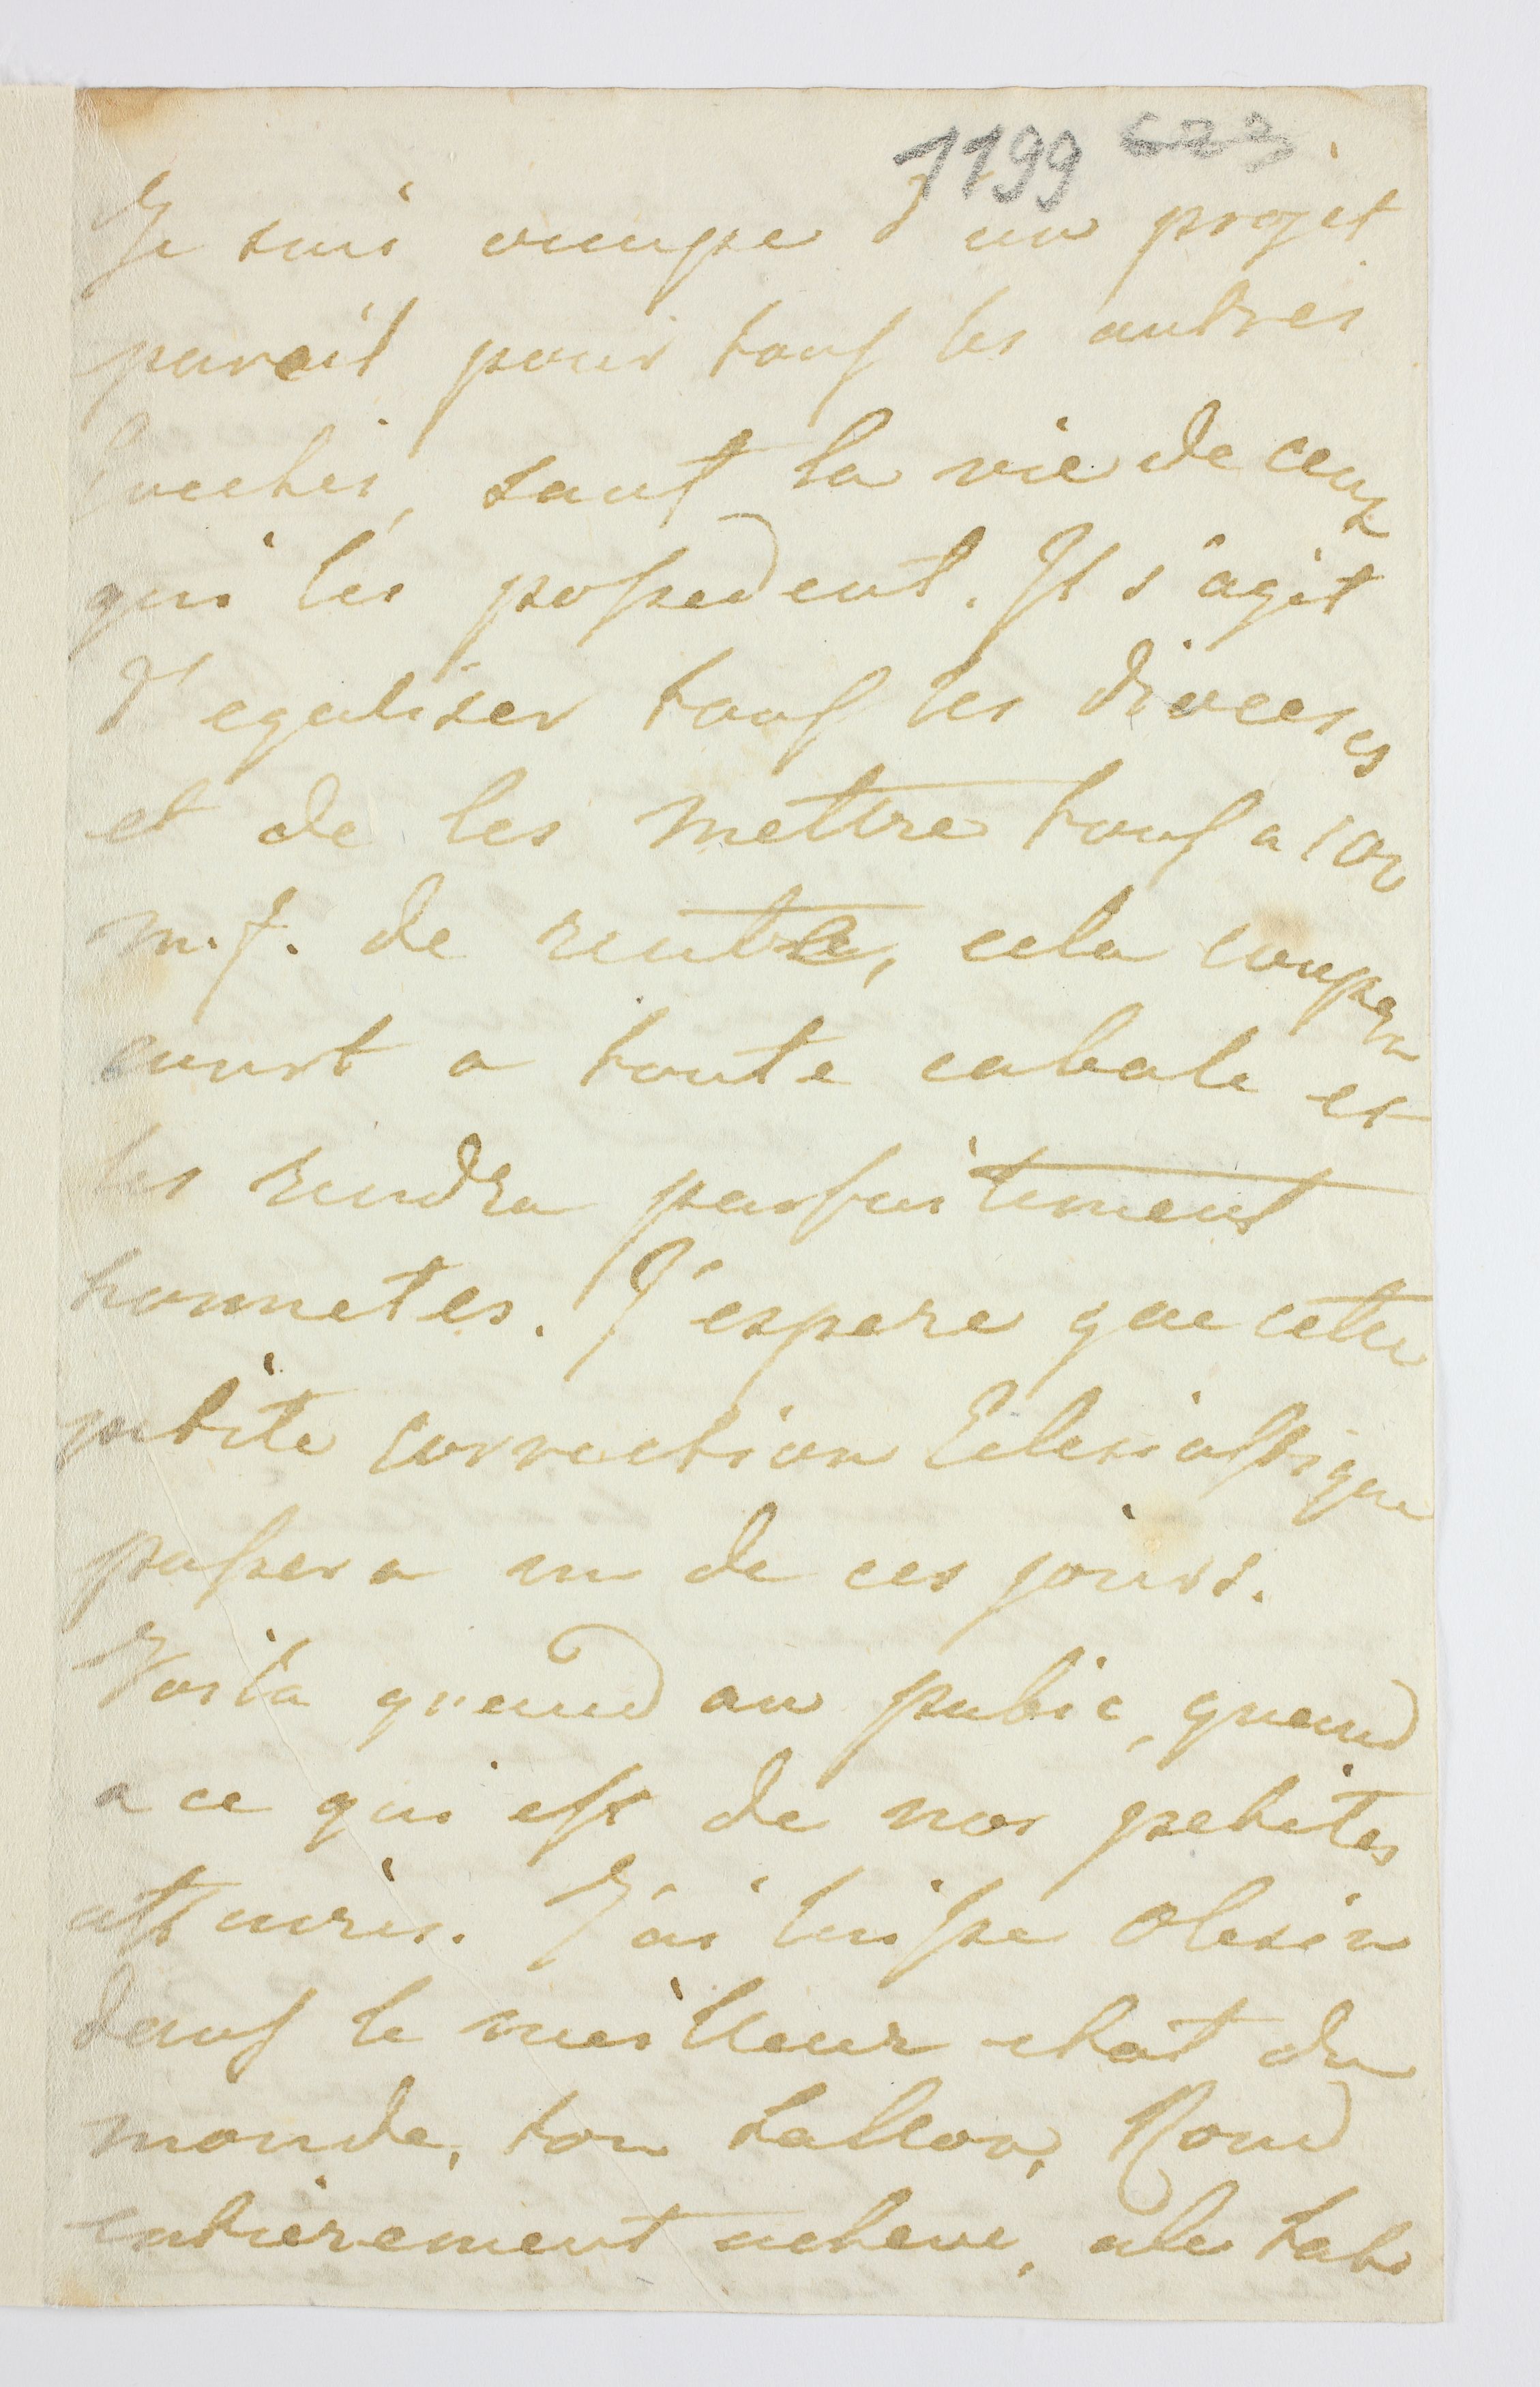 1199 623
Je suis occupe d'un projet
pareil pour tous les autres
Eveches, sauf la vie de ceux
qui les possedent. Il s'agit
d'egaliser tous les dioceses
et de les mettre tous a 100
m. f. de rente, cela coupera
court a toute cabale et
les rendra parfaitement
honnetes. J'espere que cette
petite correction Eclesiastique
passera un de ces jours.
Voila quand au pubic, quand
a ce qui est de nos petites
affaires. J'ai laisse Olesin
dans le meilleur etat du
monde, ton Sallon, Rond
entierement acheve, ale tak